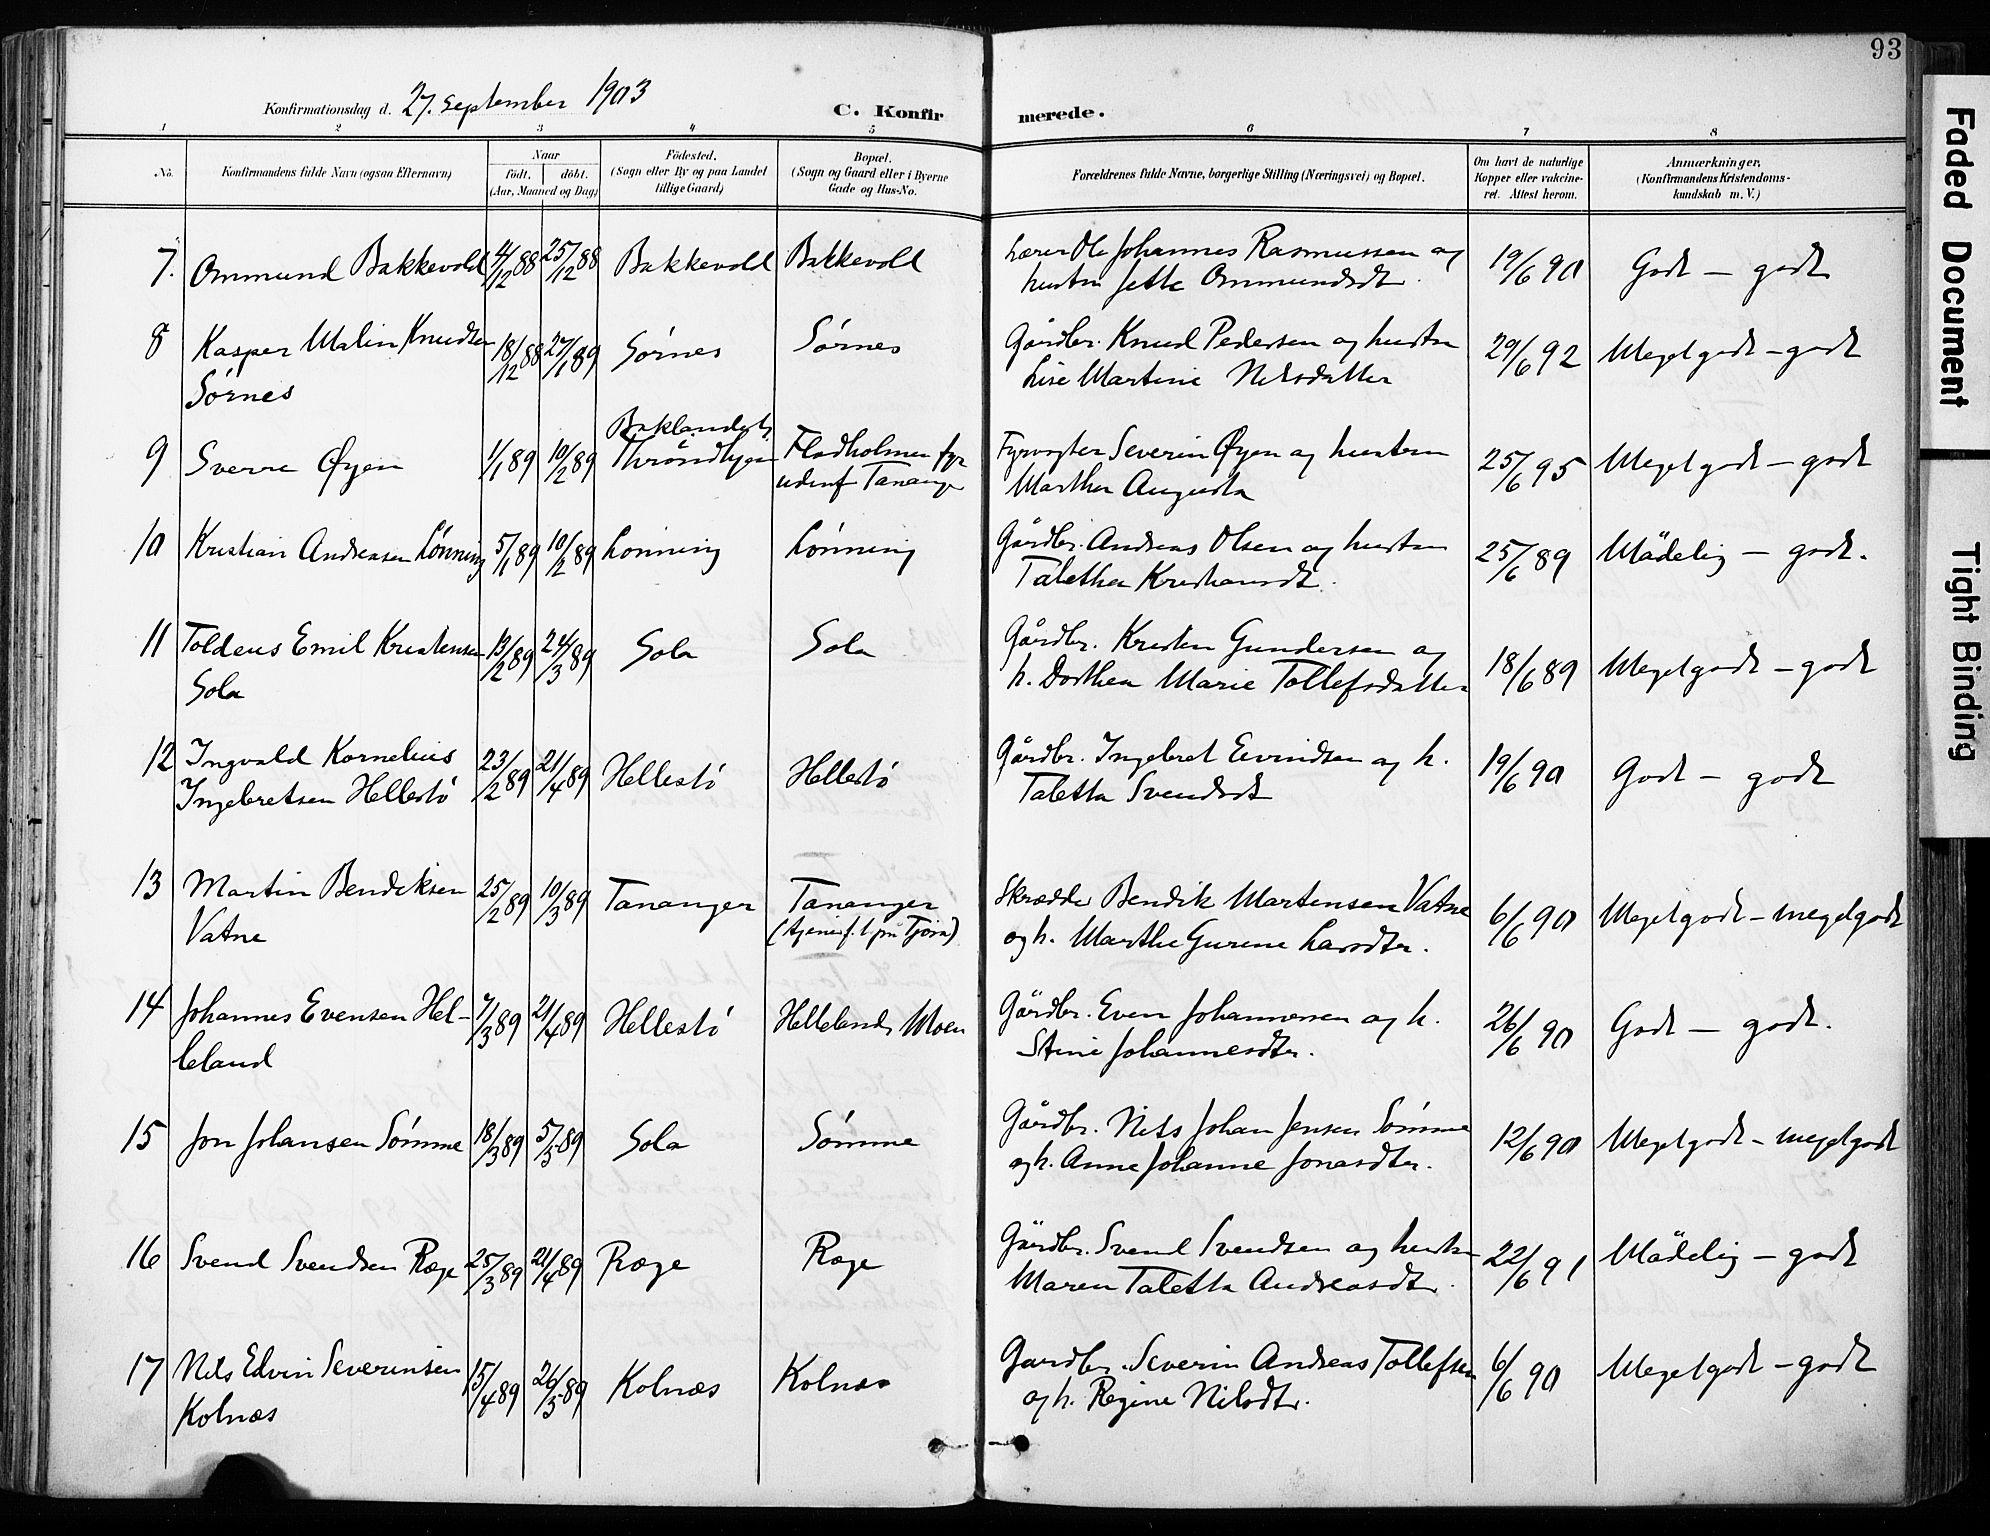 93
Konfirmationsdag d. 27. September 1903
C. Konfirmerede.
1 2 3 4 5 6 7 8
No.
Konfirmandens fulde Navn (ogsaa Efternavn)
Naar
født. døbt.
(Aar, Maaned og Dag)
Fødested.
(Sogn eller By og paa Landet
tillige Gaard)
Bopæl.
(Sogn og Gaard eller i Byerne
Gade og Hus-No.
Forældrenes fulde Navne, borgerlige Stilling (Næringsvei) og Bopæl.
Om havt de naturlige
Kopper eller vakcine-
ret. Attest herom.
Anmærkninger,
(Konfirmandens Kristendoms-
kundskab m. V.)
7. Ommund Bakkevold 4/12 88 25/12 88 Bakkevold Bakkevold Lærer Ole Johannes Rasmussen og 19/6 90 Godt — godt
hustru Jette Ommundsdt.
8 Kasper Malin Knudsen 18/12 88 27/1 89 Sørnes Sørnes Gårdbr. Knud Pedersen og hustru 29/6 92 Megetgodt — godt
Sørnes Lise Martine Nilsdatter
9 Sverre Øyen 1/1 89 10/2 89 Baklandets Throndhjem Fladholmen fyr Fyrvogter Severin Øyen og hustru 25/6 95 Megetgodt — godt
udenf Tananger Marthea Augusta
10 Kristian Andreasen Lønning 5/1 89 10/2 89 Lønning Lønning Gårdbr. Andreas Olsen og hustru 25/6 89 Mådelig — godt.
Talethea Kristiansdt.
11 Toldeus Emil Kristensen 13/2 89 24/3 89 Sola Sola Gårdbr. Kristen Gundersen og 18/6 89 Megetgodt — godt
Sola h. Dorthea Marie Tollefsdatter
12 Ingvald Kornelius 23/2 89 21/4 89 Hellestø Hellestø Gårdbr. Ingebret Eivindsen og h. 19/6 90 Godt — godt
Ingebretsen Hellestø Taletta Svendsdt
13 Martin Bendiksen 25/2 89 10/3 89 Tananger Tananger Skrædder Bendik Martensen Vatne 6/6 90 Megetgodt — megetgodt
Vatne (tjener f. t. på Tjora) og h. Marthe Gurine Larsdtr.
14 Johannes Evensen Hel- 7/3 89 21/4 89 Hellestø Hellelands Moen Gårdbr. Even Johannessen og h. 26/6 90 Godt — godt.
leland Stine Johannesdtr.
15 Jon Johansen Sømme 18/3 89 5/5 89 Sola Sømme Gårdbr. Nils Johan Jensen Sømme 12/6 90 Megetgodt — megetgodt
og h. Anne Johanne Jonasdtr.
16 Svend Svendsen Ræge 25/3 89 21/4 89 Ræge Ræge Gårdbr. Svend Svendsen og hustru 22/6 91 Mådelig — godt
Maren Taletta Andreasdt.
17 Nils Edvin Severinsen 15/4 89 26/5 89 Kolnæs Kolnæs Gardbr. Severin Andreas Tollefsen 6/6 90 Megetgodt — godt
Kolnæs og h. Regine Nilsdtr.
Faded Document
Tight Binding